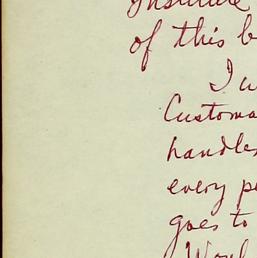 Institute
of this b
I w
Customa
handles
every pe
goes to
Woul